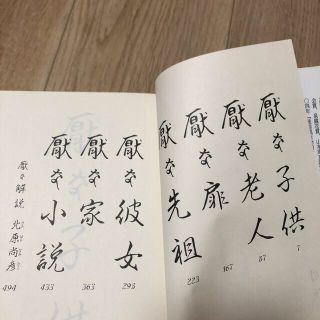 厭な子供 7
厭な老人 87
厭な扉 167
厭な先祖 223
厭な彼女 293
厭な家 363
厭な小説 433
厭な解説 北原尚彦 494